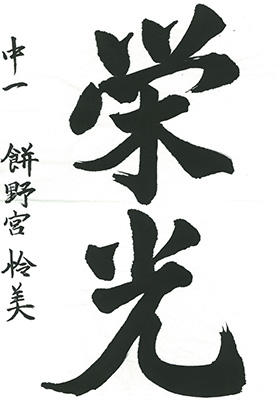 栄光
中一 餅野宮怜美